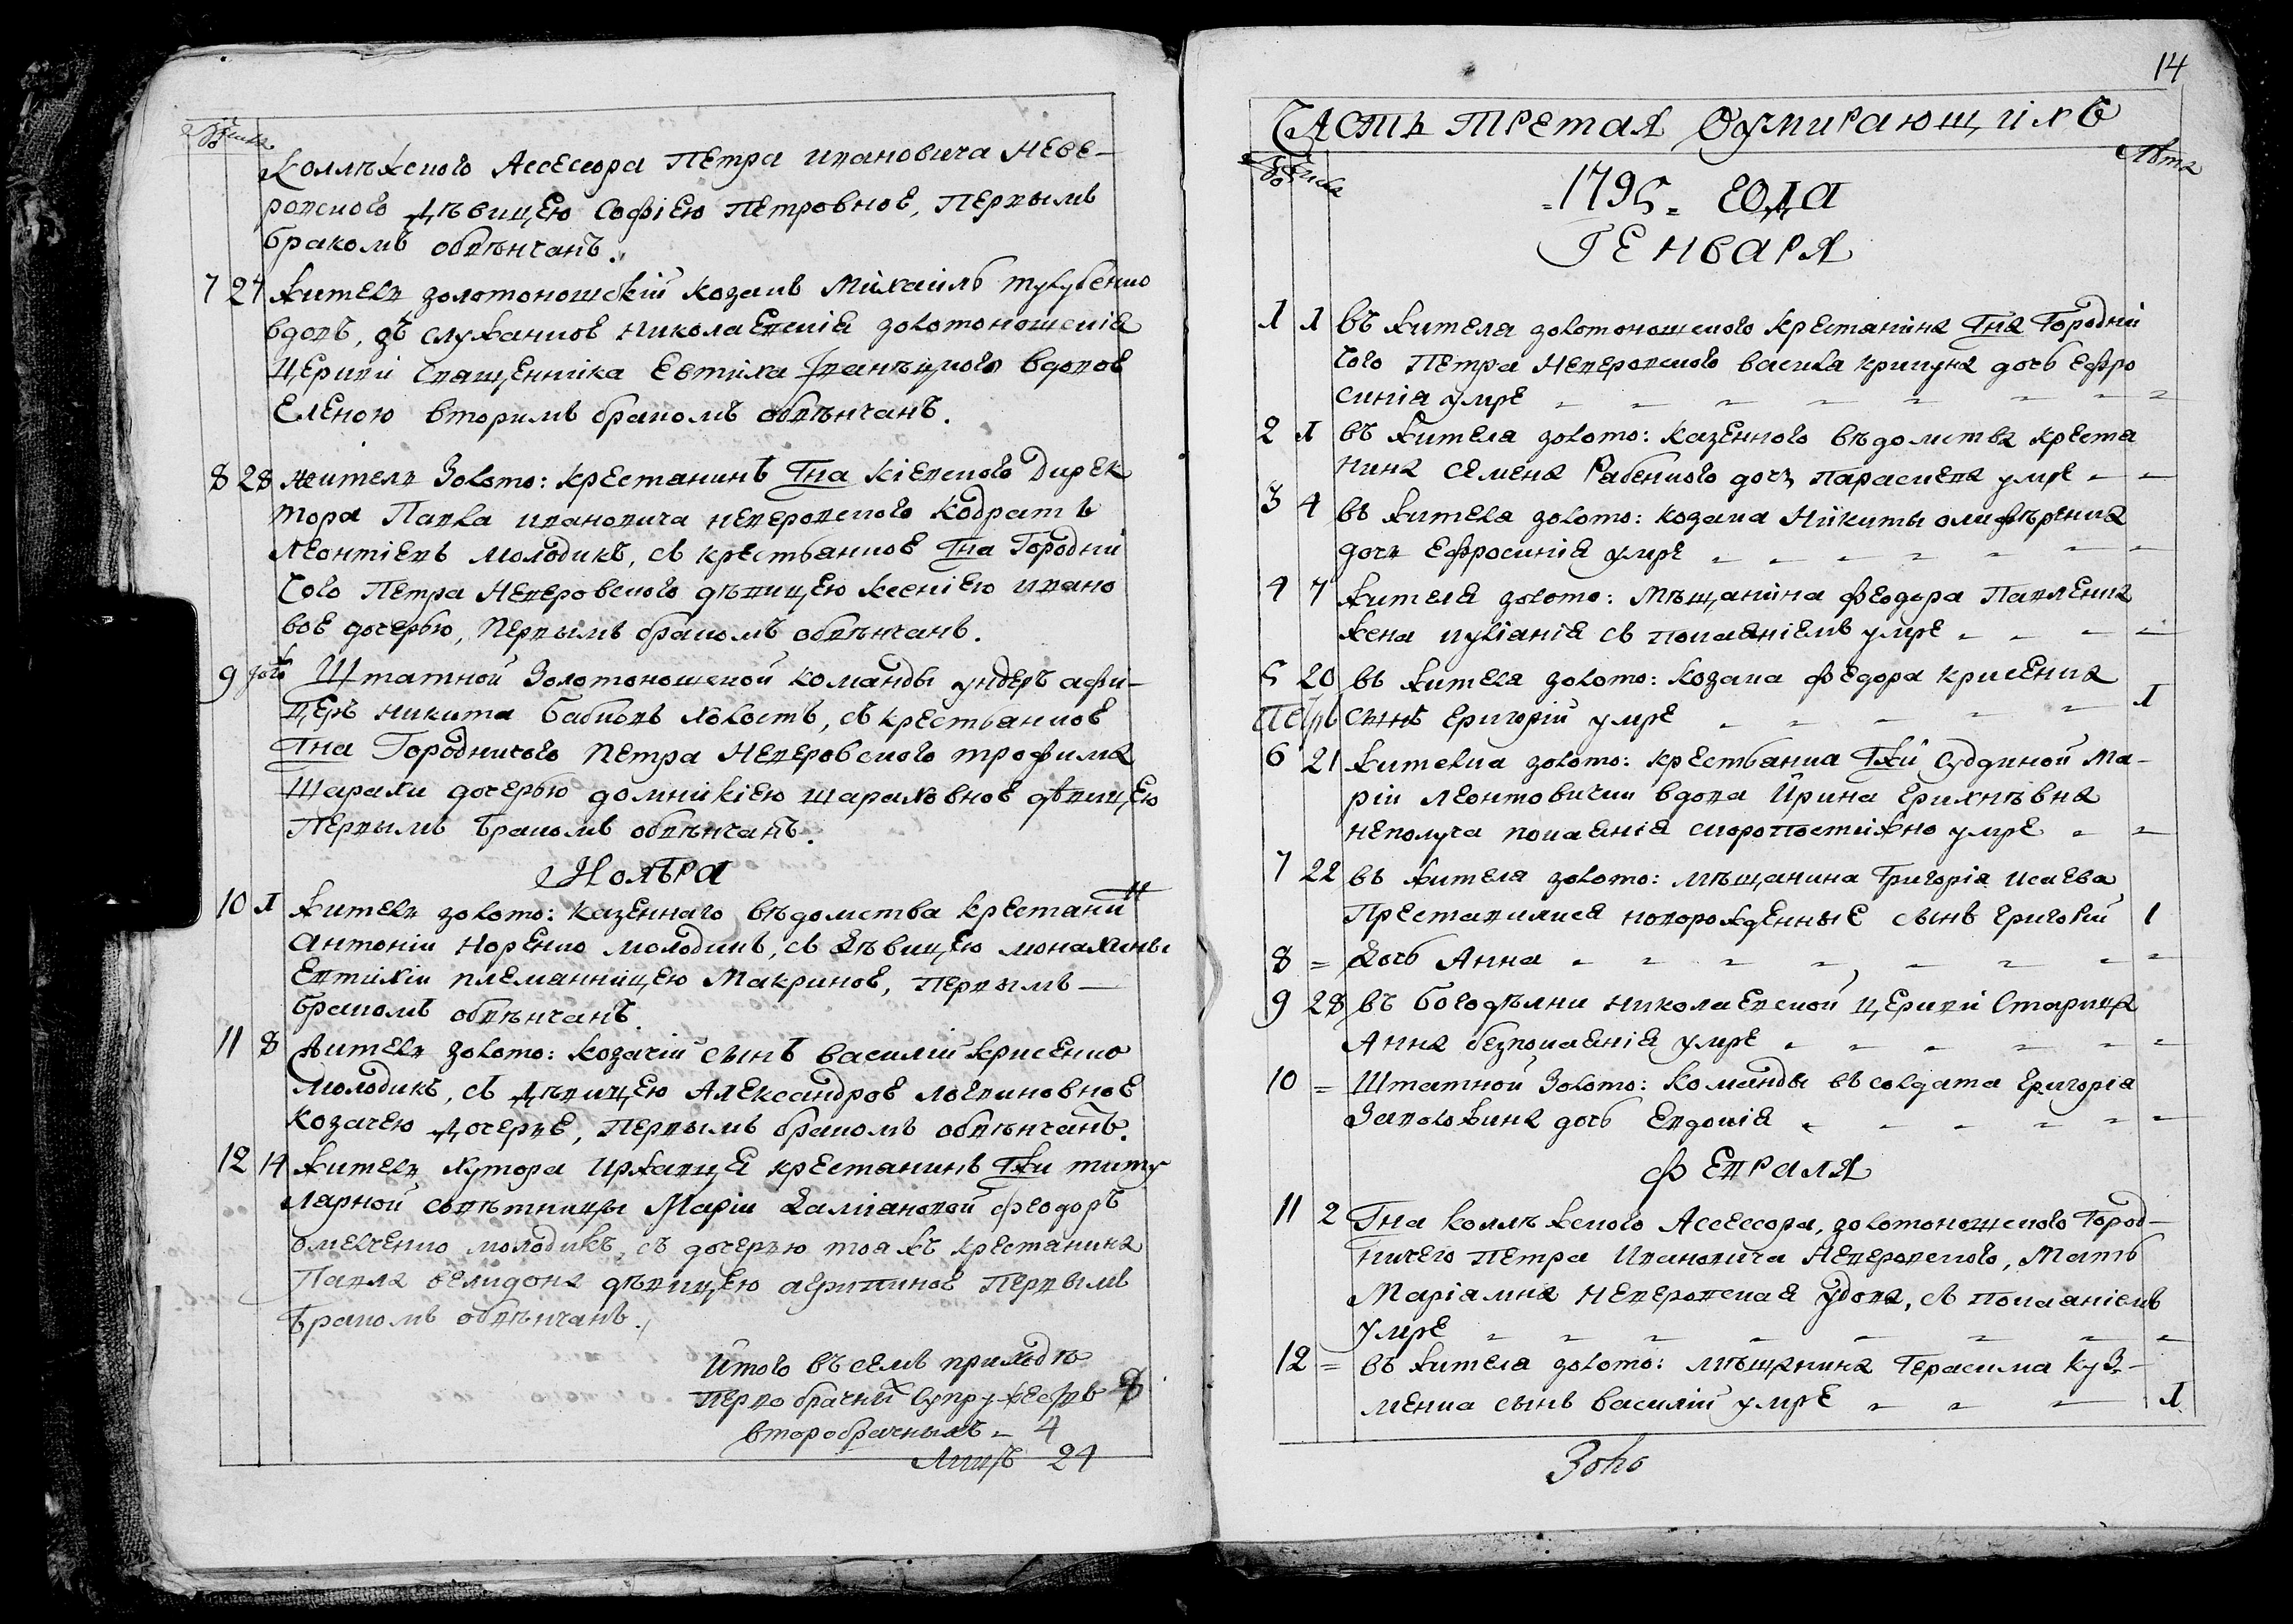 Числа
Коллѣжского Ассесора Петра Ивановича Неве-
ровского дѣвицею Софіею Петровное, первымъ
бракомъ обвѣнчанъ.
7 27 Житель золотоношскій козакъ Михаилъ
вдовъ, зъ служанкоє Николаевскія золотоношскія
церкви священника Евтиха вдовоє
Еленою вторимъ бракомъ обвѣнчанъ.
8 28 Житель Золото: крестанинъ Гна Кіевского Дирек
тора Павла Ивановича Неверовского Кодратъ
Леонтіевъ молодикъ, съ крестьанкоє Гна Городни
чого Петра Неверовского дѣвицею Ксеніею Ивано
воє дочерью, первымъ бракомъ обвѣнчанъ.
9 Штатной Золотоношской команды ундеръ афи-
церъ Никита Бабичъ холостъ, съ крестьанкоє
Гна Городничого Петра Неверовского Трофима
Шарахи дочерью Домникіею Шараховноє дѣвицею
первымъ бракомъ обвѣнчанъ.
Ноября
10 1 Житель золото: казеннаго вѣдомства крестанин
Антоній Норенко молодикъ, съ дѣвицею монахини
Евтихіи племанницею Макриноє, первымъ
бракомъ обвѣнчанъ.
11 8 Житель Золото: козачій сынъ Василій Крисенко
молодикъ, съ дѣвицею Александроє Логвиновноє
козачею дочерце, первымъ бракомъ обвѣнчанъ.
12 14 Житель хутора Иржавця крестанинъ Гжи титу
лярной совѣтницы Маріи Даміановой Феодоръ
Омелченко молодикъ, съ дочерью тояжъ крестанина
Павла дѣвицею Агрипиноє первымъ
бракомъ обвѣнчанъ.
Итого въ семъ приходѣ
перво брачних супружествъ 8
второбрачныхъ - 4
Лицъ 24
14
Часть третая о умирающихъ
Числа Лѣта
1795 года
Генваря
1 1 въ жителя золотоношского крестанина Гна Городни
чого Петра Неверовского Василя Крикуна дочь Ефро
синія умре
2 1 въ жителя золото: казенного вѣдомства креста
нина Семена Рабенкого дочь Параскева умре
3 4 въ жителя золото: козака Никиты Олифѣренка
дочь Ефросинія умре
4 7 жителя золото: мѣщанина Феодора Павленка
жена Иуліанія съ покаяніемъ умре
5 20 въ жителя золото: козака Федора Крисенка
сынъ Григорій умре 1
6 21 жителка золото: крестьанка Гжи Судиной Ма-
ріи Леонтовички вдова Ирина Грихнѣвна
неполуча покаянія скоропостижно умре
7 22 въ жителя золото: мѣщанина Григорія Исаева
преставилися новорожденные сынъ Григорій 1
8 = дочь Анна
9 28 въ богодѣлни Николаевской церкви старица
Анна безпокаянія умре
10 = Штатной Золото: команды въ солдата Григорія
Заволожина дочь Евдокія
Февраля
11 2 Гна Коллѣжского Ассесора, золотоношского Город-
ничего Петра Ивановича Неверовского, мать
Маріамна Неверовская удова, съ покаяніемъ
умре
12 = въ жителя золото: мѣщанина Герасима Куз-
менка сынъ Василій умре 1
Золо